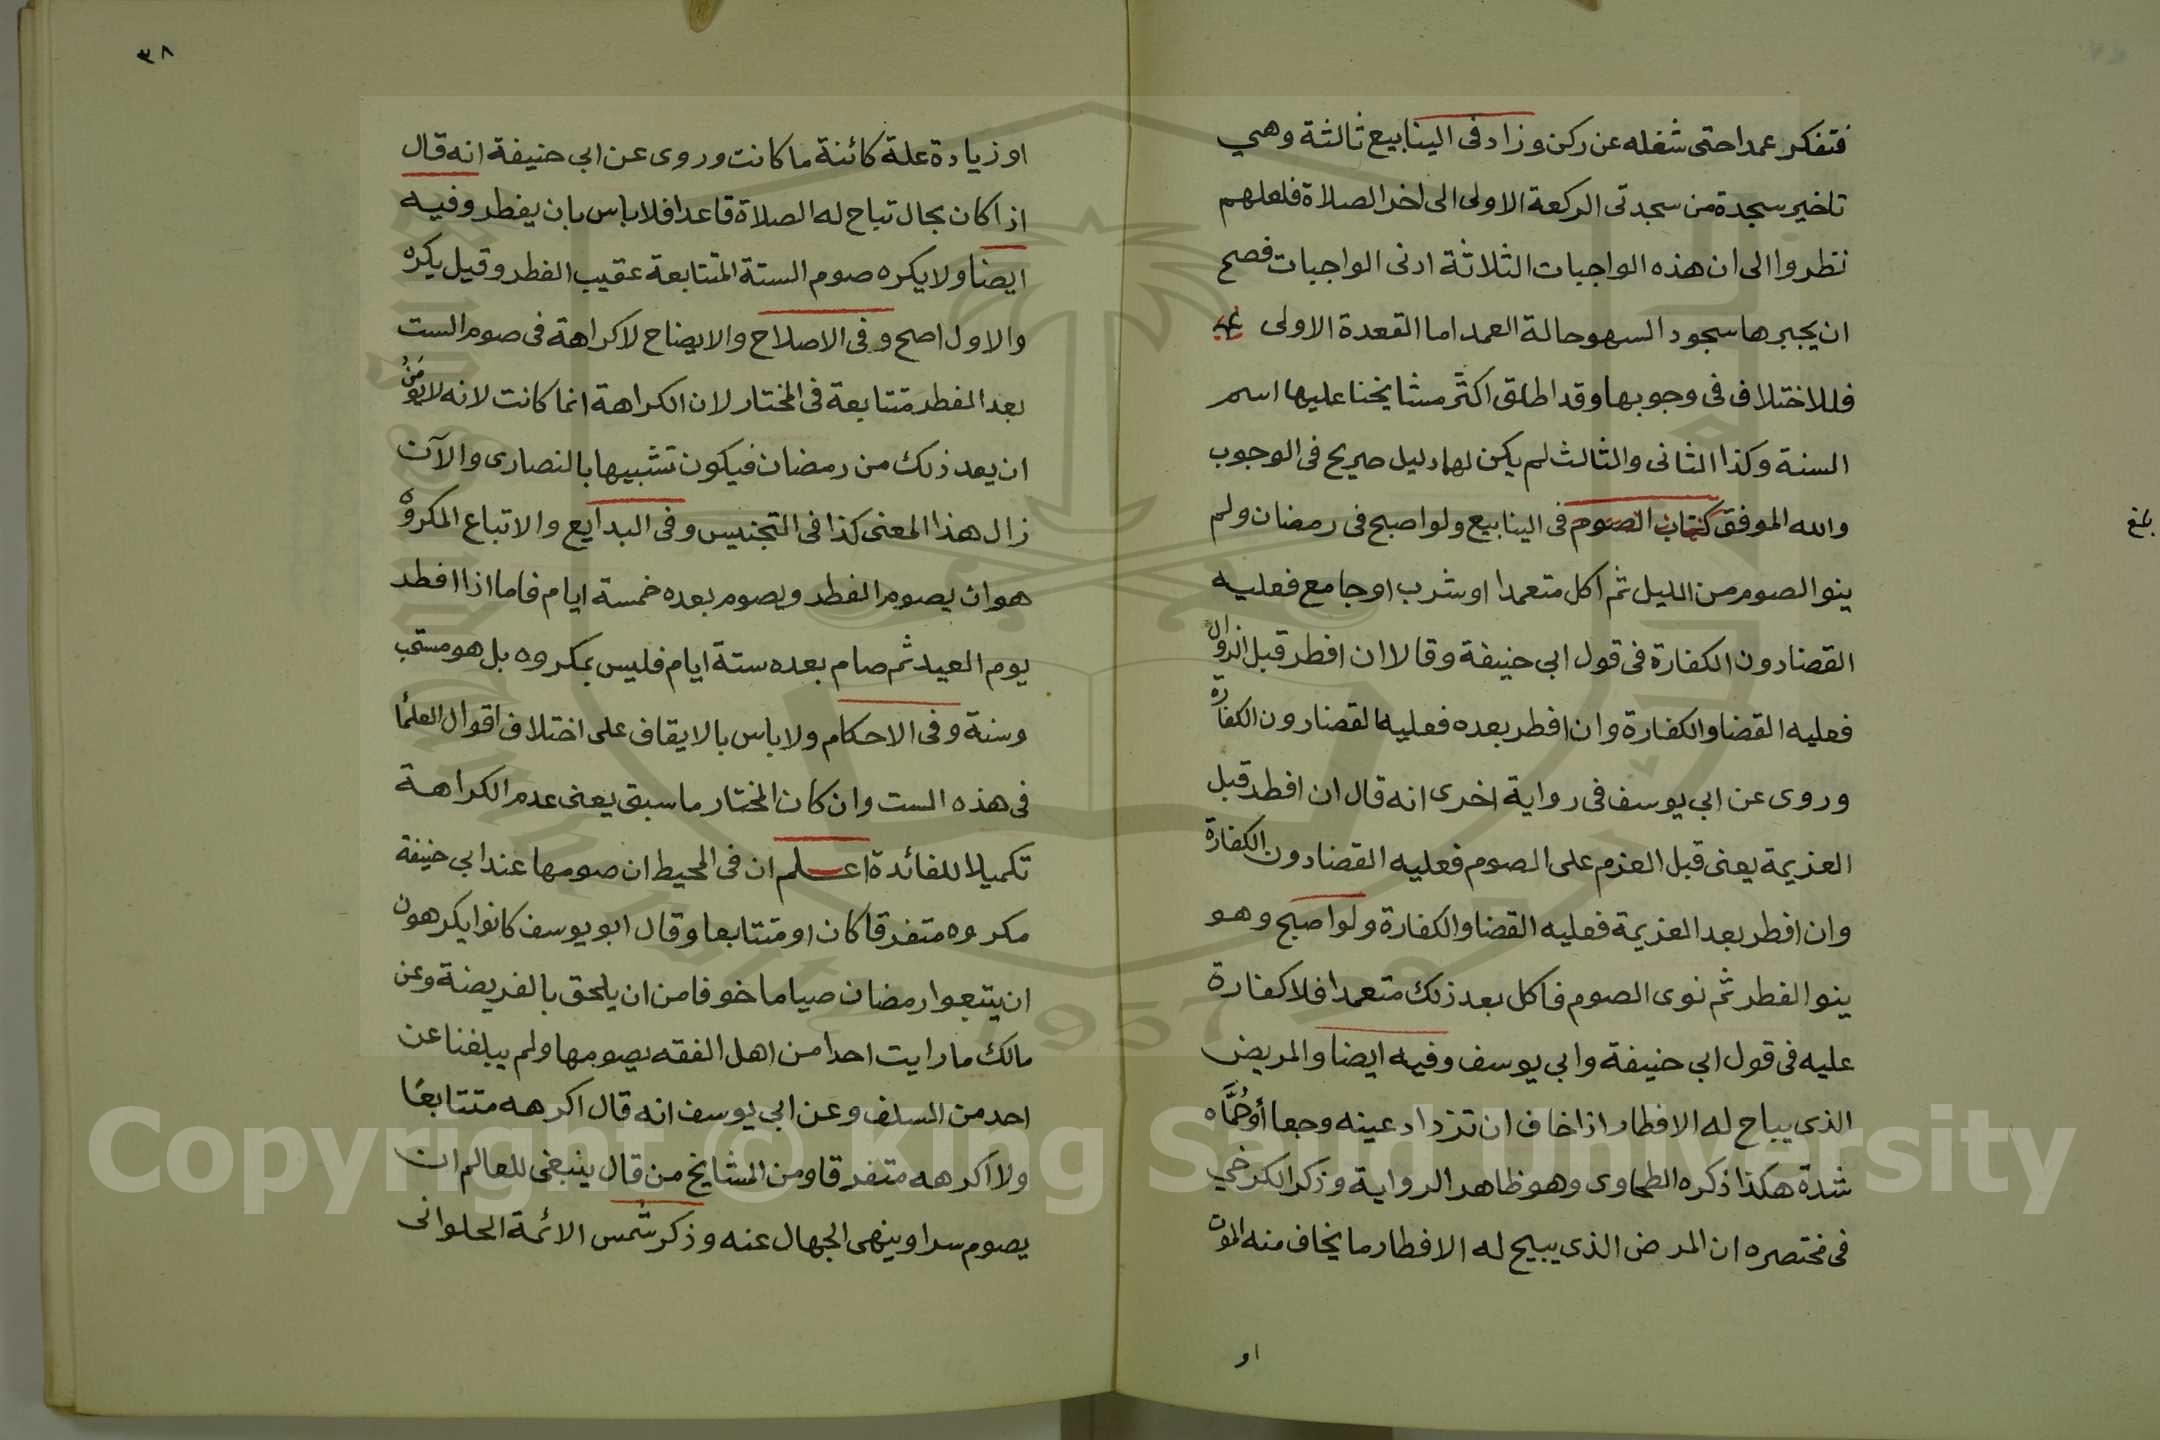 فتفكر عمدا حتى شغله عن ركن وزاد فى الينابيع ثالثة وهي
تاخير سجدة من سجدتى الركعة الاولى الى اخر الصلاة فلعلهم
نظروا الى ان هذه الواجبات الثلاثة ادنى الواجبات فصح
ان يجبرها سجود السهو حالة العمد اما القعدة الاولى
فللاختلاف فى وجوبها وقد اطلق اكثر مشايخنا عليها اسم
السنة وكذا الثانى والثالث لم يكن لهما دليل صريح فى الوجوب
والله الموفق كتاب الصوم فى الينابيع ولو اصبح فى رمضان ولم
ينو الصوم من الليل ثم اكل متعمدا او شرب او جامع فعليه
القضا دون الكفارة فى قول ابى حنيفة وقالا ان افطر قبل الزوال
فعليه القضا والكفارة وان افطر بعده فعليه القضا دون الكفارة
وروى عن ابى يوسف فى رواية اخرى انه قال ان افطر قبل
العزيمة يعنى قبل العزم على الصوم فعليه القضا دون الكفارة
وان افطر بعد العزيمة فعليه القضا والكفارة ولو اصبح وهو
ينو الفطر ثم نوى الصوم فاكل بعد ذلك متعمدا فلا كفارة
عليه فى قول ابى حنيفة وابى يوسف وفيه ايضا والمريض
الذى يباح له الافطار اذا خاف ان تزداد عينه وجعا أو حُمَّاه
شدة هكذا ذكره الطحاوى وهو ظاهر الرواية وذكر الكرخي
فى مختصره ان المرض الذى يبيح له الافطار ما يخاف منه الموت
او
بلغ
٣٨
او زيادة علة كائنة ما كانت وروى عن ابى حنيفة انه قال
اذا كان بحال تباح له الصلاة قاعدا فلا باس بان يفطر وفيه
ايضا ولا يكره صوم الستة المتتابعة عقيب الفطر وقيل يكره
والاول اصح وفى الاصلاح والايضاح لا كراهة فى صوم الست
بعد الفطر متتابعة فى المختار لان الكراهة انما كانت لانه لا يؤمَنُ
ان يعد ذلك من رمضان فيكون تشبيها بالنصارى والآن
زال هذا المعنى كذا فى التجنيس وفى البدايع والاتباع المكروه
هو ان يصوم الفطر ويصوم بعده خمسة ايام فاما اذا افطر
يوم العيد ثم صام بعده ستة ايام فليس بمكروه بل هو مستحب
وسنة وفى الاحكام ولا باس بالايقاف على اختلاف اقوال العلما
فى هذه الست وان كان المختار ما سبق يعنى عدم الكراهة
تكميلا للفائدة اعلم ان فى المحيط ان صومها عند ابى حنيفة
مكروه متفرقا كان او متتابعا وقال ابو يوسف كانوا يكرهون
ان يتبعوا رمضان صياما خوفا من ان يلحق بالفريضة وعن
مالك ما رايت احدا من اهل الفقه يصومها ولم يبلغنا عن
احد من السلف وعن ابى يوسف انه قال اكرهه متتابعًا
ولا اكرهه متفرقا ومن المشايخ من قال ينبغى للعالم ان
يصوم سرا وينهى الجهال عنه وذكر شمس الائمة الحلوانى
Copyright © King Saud University
1957